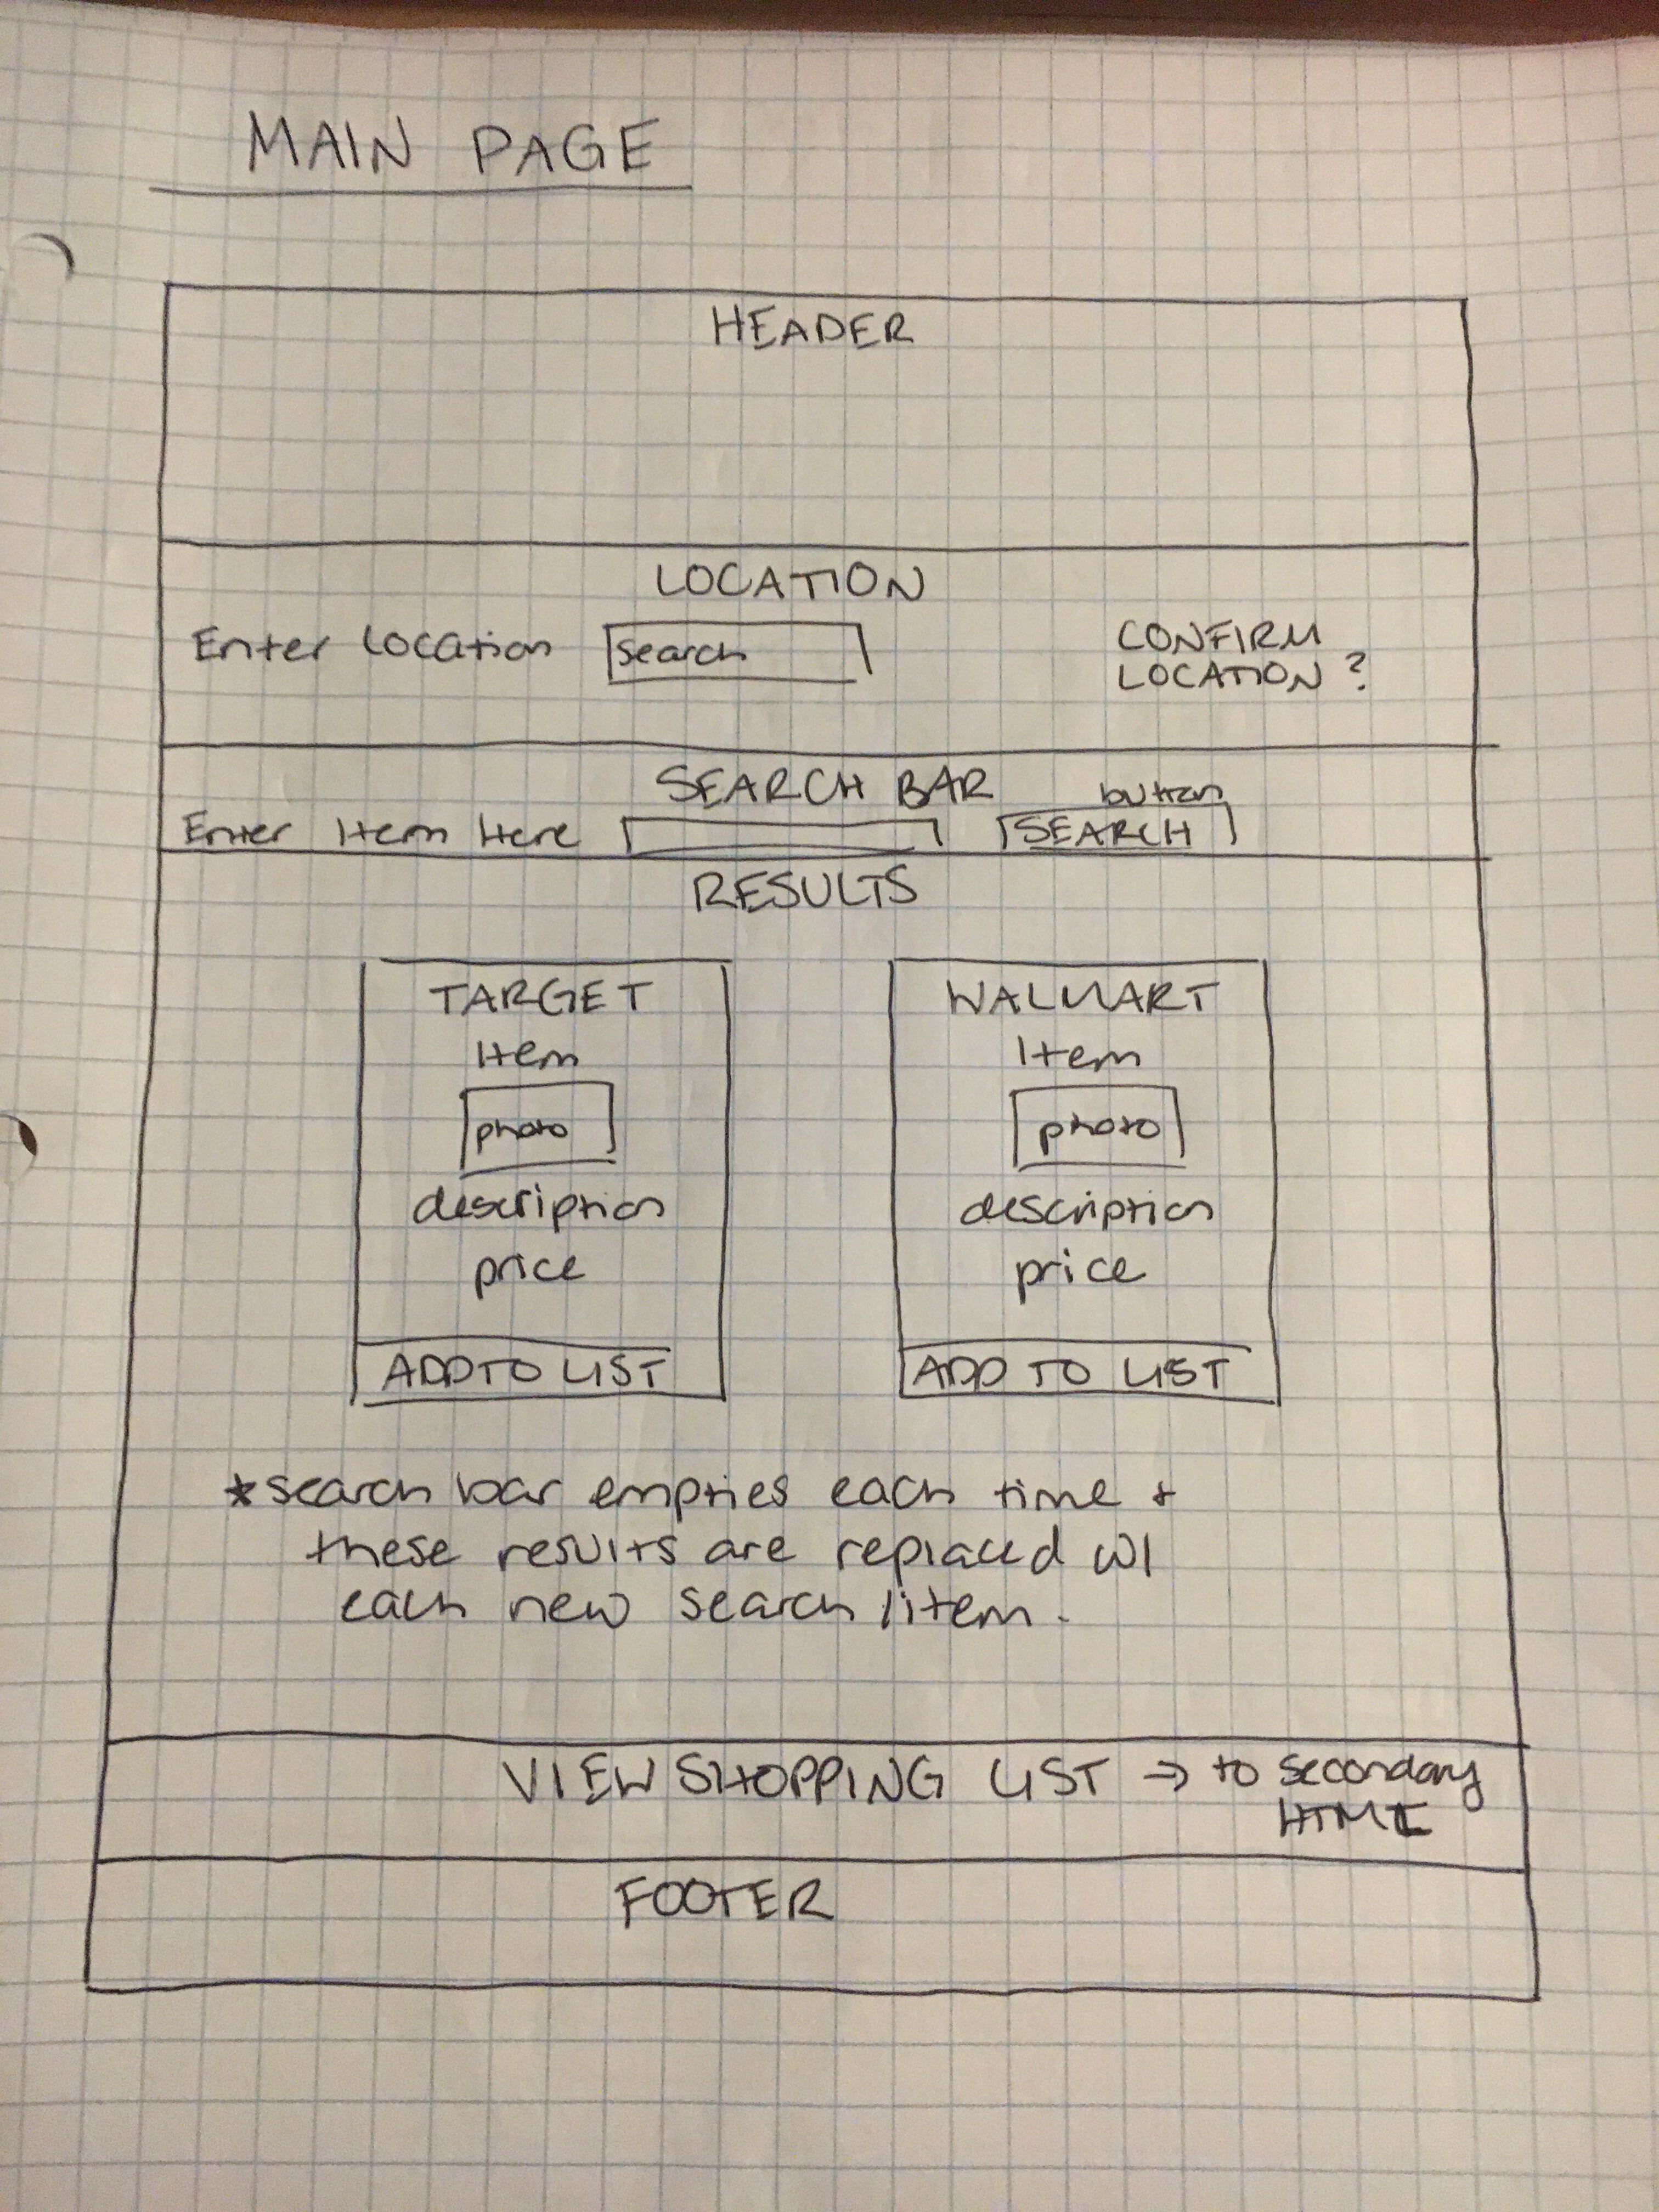 MAIN PAGE
HEADER
LOCATION
Enter Location search
CONFIRM
LOCATION ?
SEARCH BAR
button
Enter Item Here SEARCH
RESULTS
TARGET
Item
photo
description
price
ADD TO LIST
WALMART
Item
photo
description
price
ADD TO LIST
*search bar empties each time +
these results are replaced w/
each new search/item.
VIEW SHOPPING LIST → to secondary
HTML
FOOTER